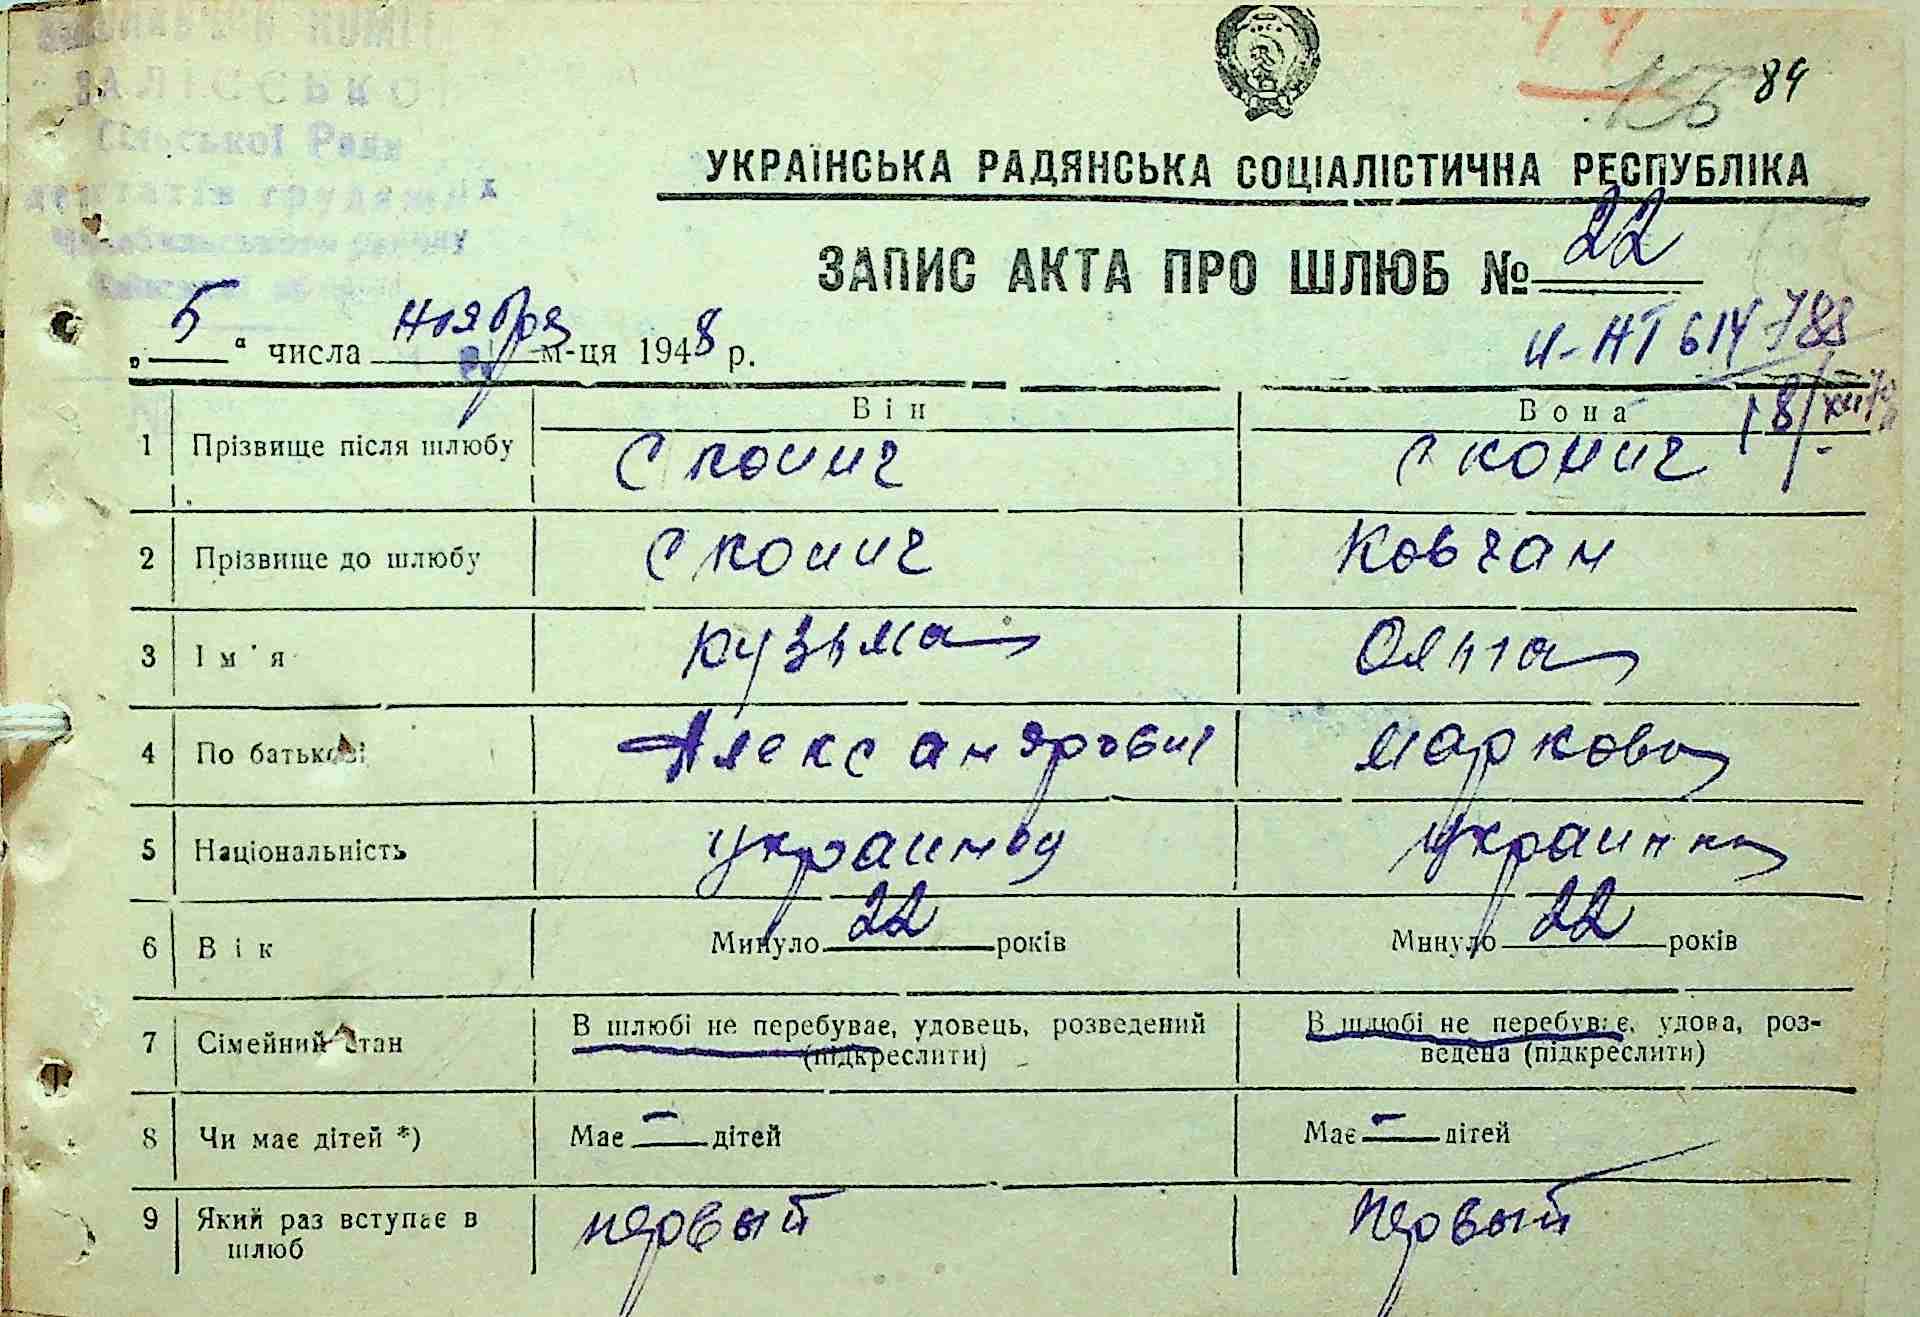 ЗАЛІССЬКОЇ
Сільської Ради
депутатів трудящих
84
УКРАЇНСЬКА РАДЯНСЬКА СОЦІАЛІСТИЧНА РЕСПУБЛІКА
ЗАПИС АКТА ПРО ШЛЮБ № 22
„ 5 “ числа ноября м-ця 1948 р.
II-НТ 614788
18/XII
Він Вона
1 Прізвище після шлюбу Скопич Скопич
2 Прізвище до шлюбу Скопич Ковчан
3 Ім'я Кузьма Ольга
4 По батькові Александрович Маркова
5 Національність украинец украинка
6 Вік Минуло 22 років Минуло 22 років
7 Сімейний стан В шлюбі не перебуває, удовець, розведений (підкреслити) В шлюбі не перебуває, удова, роз-
ведена (підкреслити)
8 Чи має дітей *) Має — дітей Має — дітей
9 Який раз вступає в шлюб первый первый